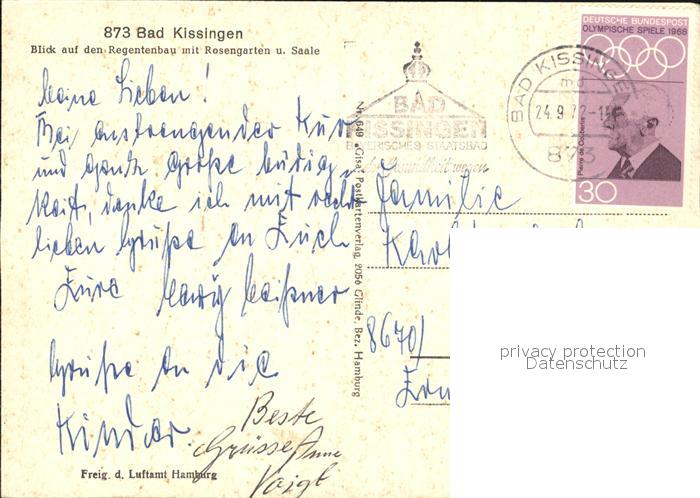 873 Bad Kissingen
Blick auf den Regentenbau mit Rosengarten u. Saale
DEUTSCHE BUNDESPOST
OLYMPISCHE SPIELE 1968
Pierre de Coubertin
30
BAD KISSINGEN
24.9.72-1
873
BAD
KISSINGEN
BAYERISCHES STAATSBAD
der Gesundheit wegen
Nr. 649 "Gisa" Postkartenverlag, 2056 Glinde, Bez. Hamburg
Lieben!
Bei anstrengender Kur
und ganz große
danke ich mit recht
lieben Grüße an Euch
Eure
Grüße an die
Kinder.
Beste
Grüsse Anne
Voigt
Familie
Karl
8670/
Freig. d. Luftamt Hamburg
privacy protection
Datenschutz